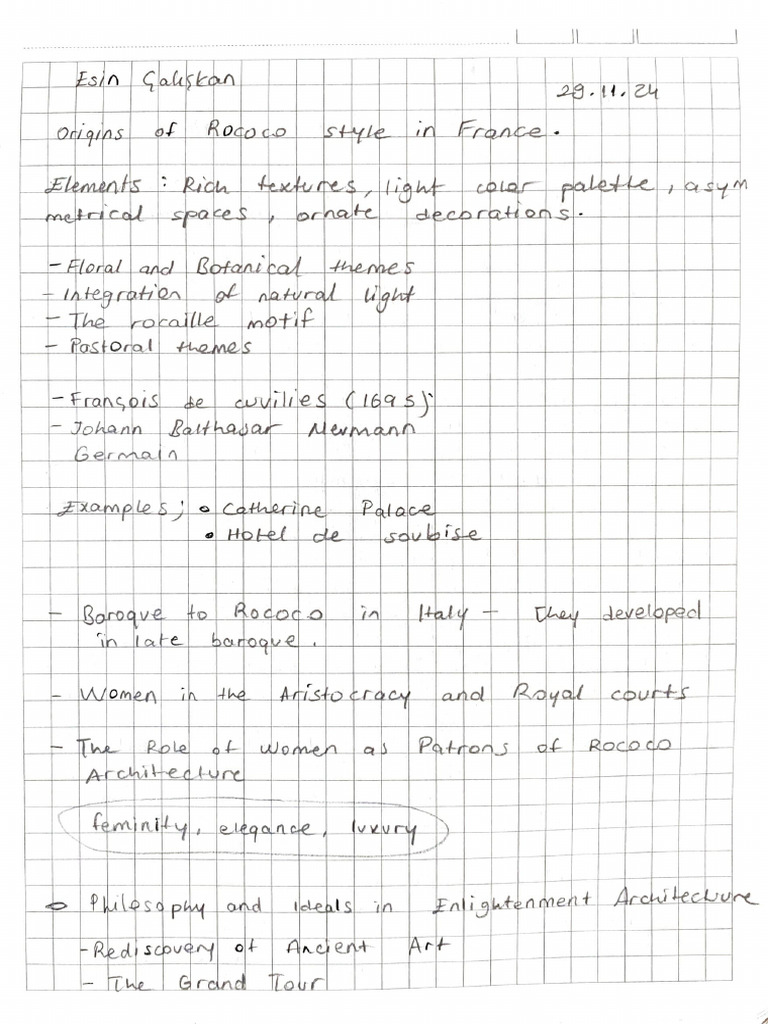 Esin Çalışkan
29.11.24
Origins of Rococo style in France.
Elements : Rich textures, light color palette, asym
metrical spaces, ornate decorations.
- Floral and Botanical themes
- Integration of natural light
- The rocaille motif
- Pastoral themes
- François de cuvilies (1695)
- Johann Balthasar Neumann
Germain
Examples; • Catherine Palace
• Hotel de soubise
- Baroque to Rococo in Italy - They developed
in late baroque.
- Women in the Aristocracy and Royal courts
- The Role of Women as Patrons of Rococo
Architecture
feminity, elegance, luxury
Philosophy and Ideals in Enlightenment Architecture
- Rediscovery of Ancient Art
- The Grand Tour